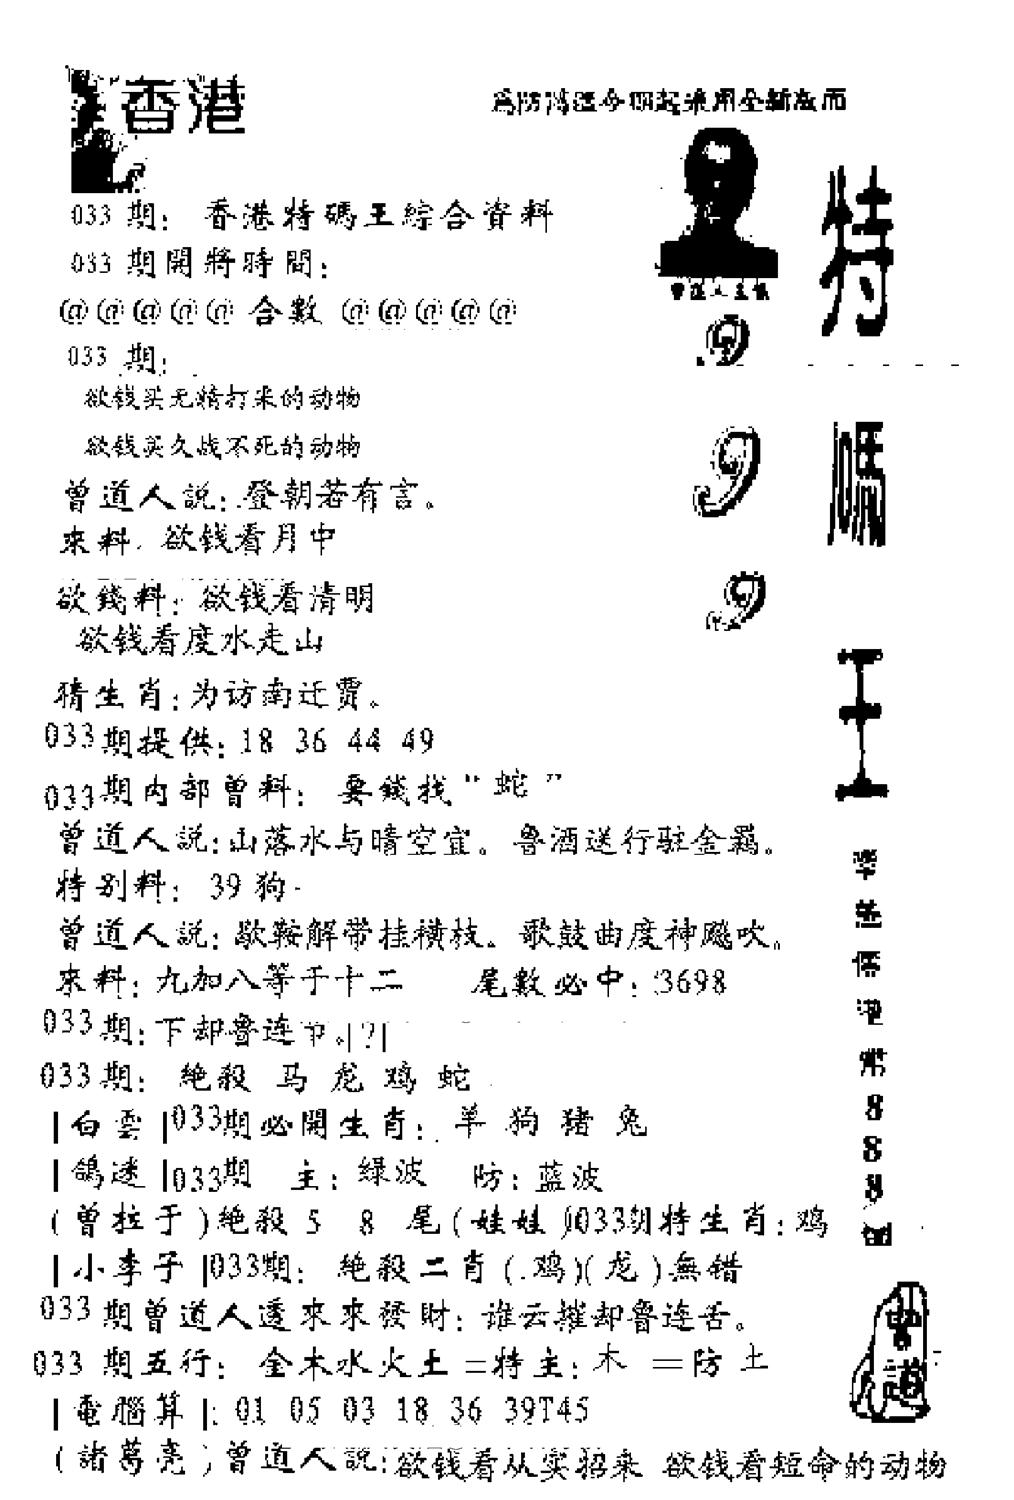 香港
033 期： 香港特碼王綜合資料
033 期開將時間：
@@@@@ 合數 @@@@@
033 期：
欲钱买无精打采的动物
欲钱买久战不死的动物
曾道人説：登朝若有言。
來料： 欲钱看月中
欲錢料： 欲钱看清明
欲钱看度水走山
猜生肖：为访南迁贾。
033期提供：18 36 44 49
033期内部曾料： 要錢找“蛇”
曾道人説：山落水与晴空宜。鲁酒送行驻金羁。
特别料： 39 狗
曾道人説：歇鞍解带挂横枝。歌鼓曲度神飚吹。
來料：九加八等于十二 尾數必中：3698
033期：下却鲁连节。|?|
033期： 絶殺 马 龙 鸡 蛇
|白雲|033期必開生肖： 羊 狗 猪 兔
|鴿迷|033期 主：绿波 防：蓝波
(曾拉于)絶殺 5 8 尾(娃娃)033期特生肖：鸡
|小李子|033期： 絶殺二肖(鸡)(龙)無错
033期曾道人透來來發財：谁云摧却鲁连舌。
033 期五行： 金木水火土＝特主：木 ＝防 土
|電腦算|：01 05 03 18 36 39T45
(諸葛亮)曾道人説：欲钱看从实招来 欲钱看短命的动物
為防 今期起采用全新版面
9
9
9
特
碼
王
港
幣
8
8
8
曾
道